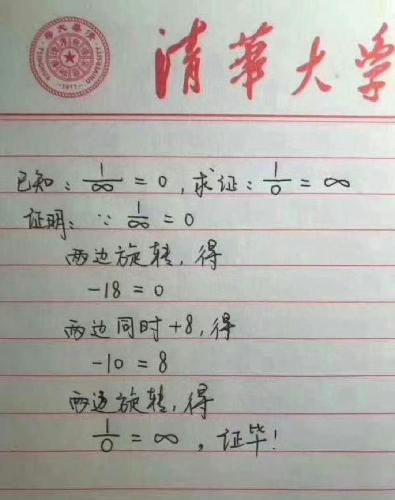 清华大学
1911
已知：1/∞ = 0，求证：1/0 = ∞
证明：∵ 1/∞ = 0
两边旋转，得
-18 = 0
两边同时+8，得
-10 = 8
两边旋转，得
1/0 = ∞，证毕！